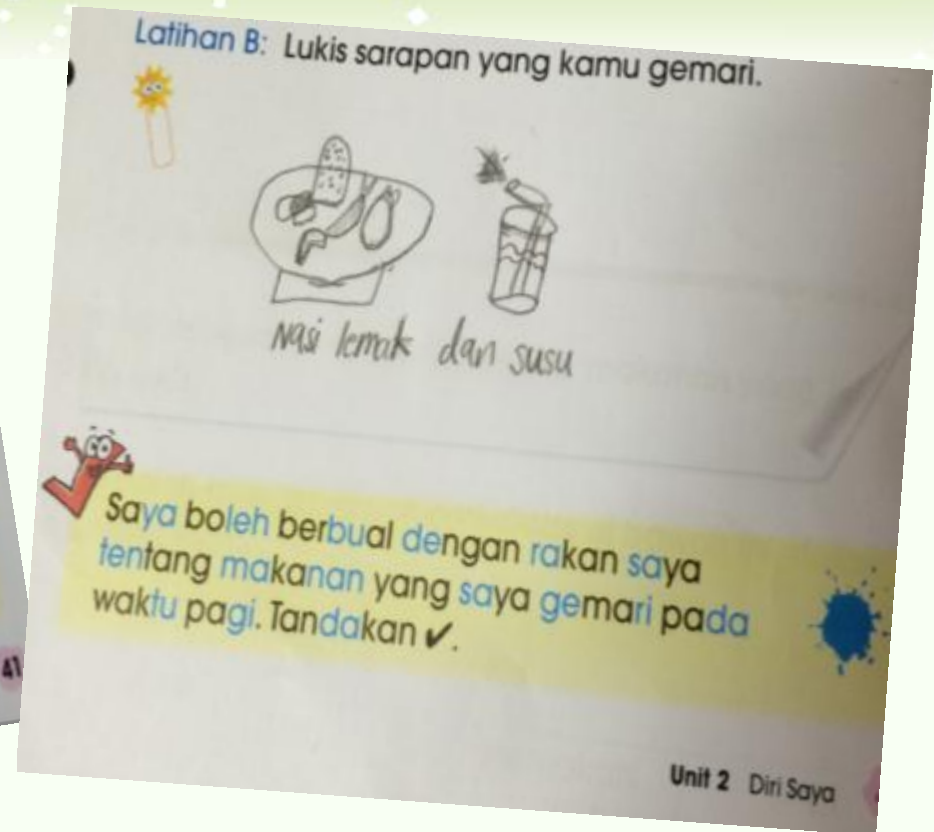 Latihan B: Lukis sarapan yang kamu gemari.
Nasi lemak dan susu
Saya boleh berbual dengan rakan saya
tentang makanan yang saya gemari pada
waktu pagi. Tandakan ✔.
41
Unit 2 Diri Saya